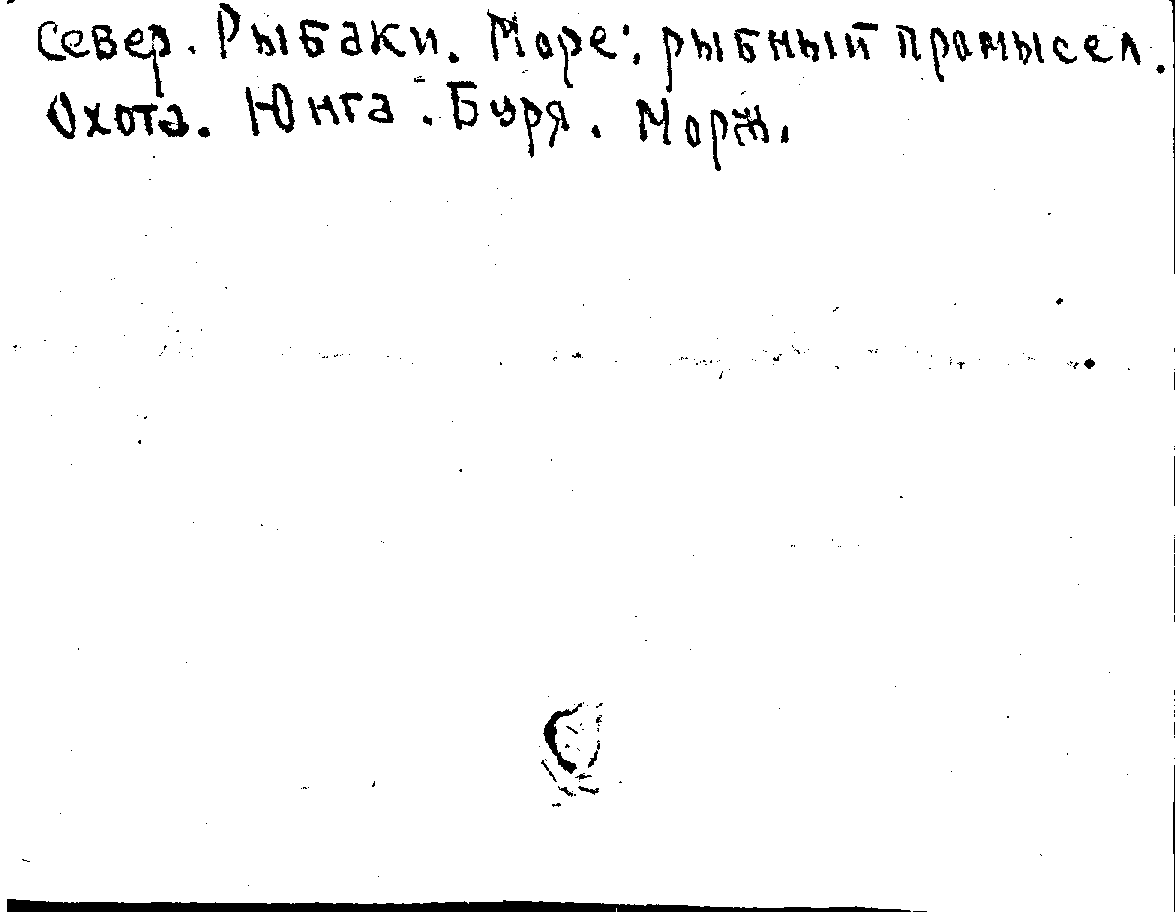 Север. Рыбаки. Море: рыбный промысел.
Охота. Юнга. Буря. Морж.